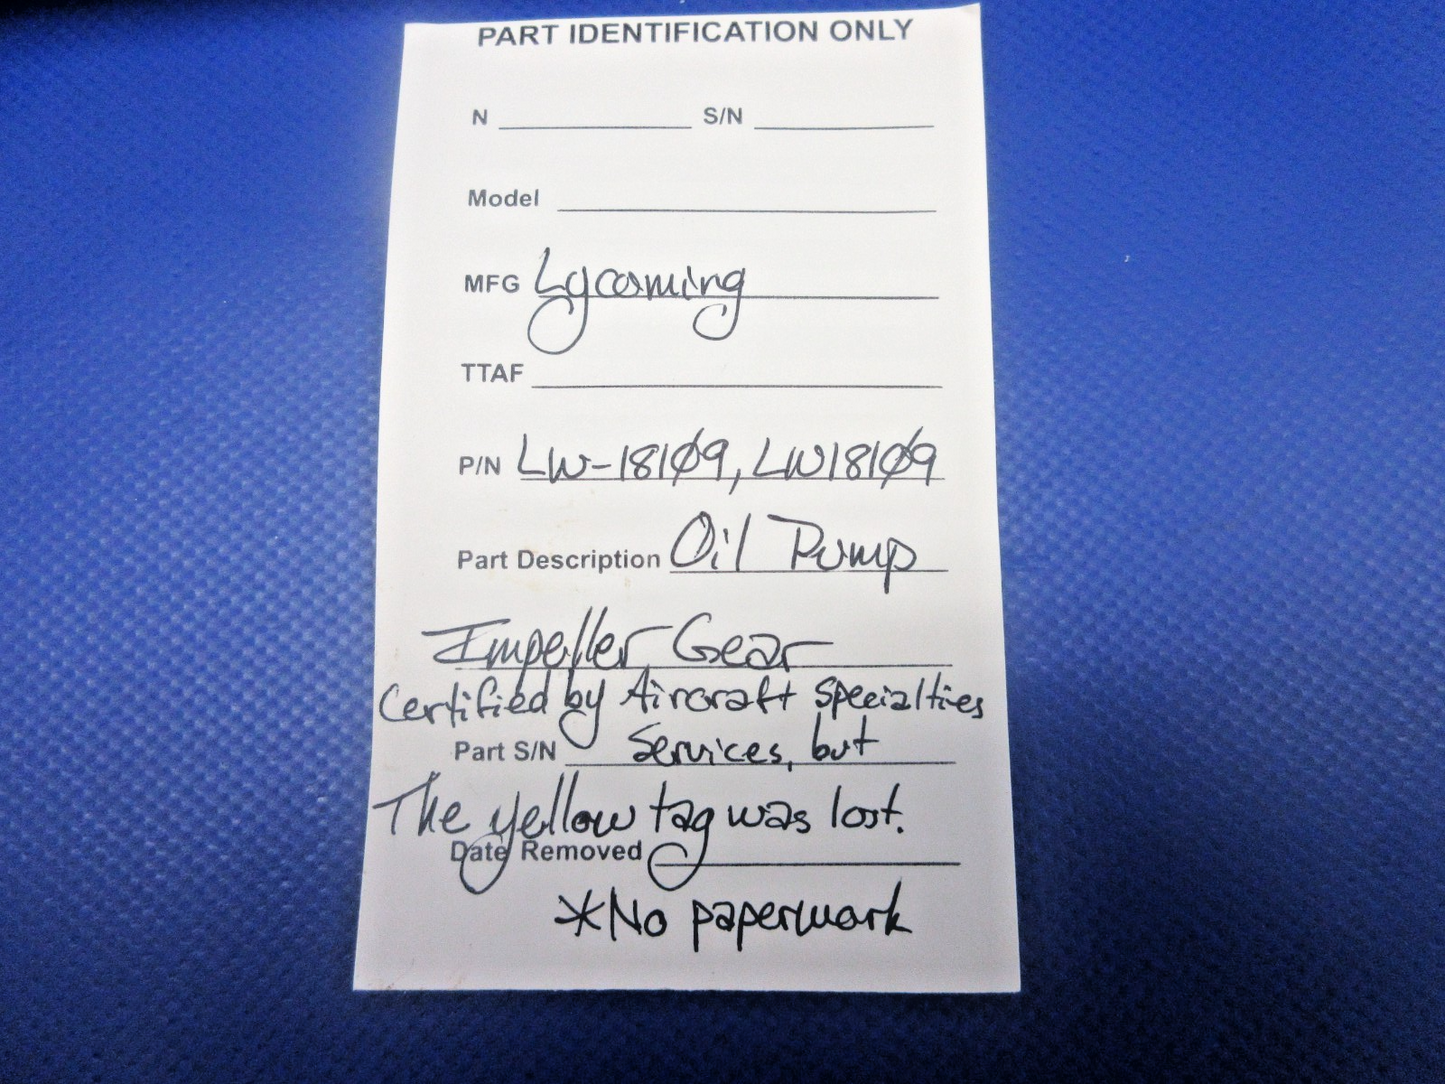 PART IDENTIFICATION ONLY
N S/N
Model
MFG Lycoming
TTAF
P/N LW-18109, LW18109
Part Description Oil Pump
Impeller Gear
Certified by Aircraft Specialties
Part S/N Services, but
The yellow tag was lost.
Date Removed
*No paperwork